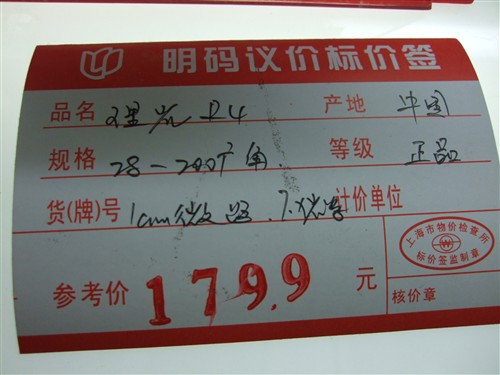 明码议价标价签
品名 理光 R4 产地 中国
规格 28-200广角 等级 正品
货(牌)号 1cm微距. 计价单位
上海市物价检查所
标价签监制章
参考价 1799 元 核价章